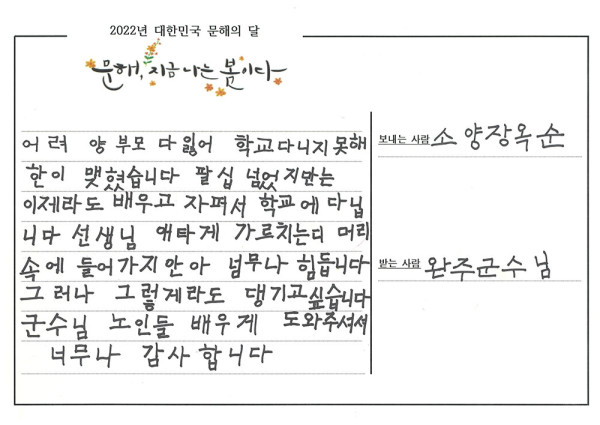 2022년 대한민국 문해의 달
문해, 지금 나는 봄이다
어려 양 부모 다 잃어 학교다니지 못해
한이 맺혔습니다 팔십 넘었지만는
이제라도 배우고 자퍼서 학교에 다닙
니다 선생님 애타게 가르치는디 머리
속에 들어가지안아 넘무나 힘듭니다
그러나 그렇게라도 댕기고싶습니다
군수님 노인들 배우게 도와주셔서
너무나 감사합니다
보내는 사람 소양장옥순
받는 사람 완주군수님